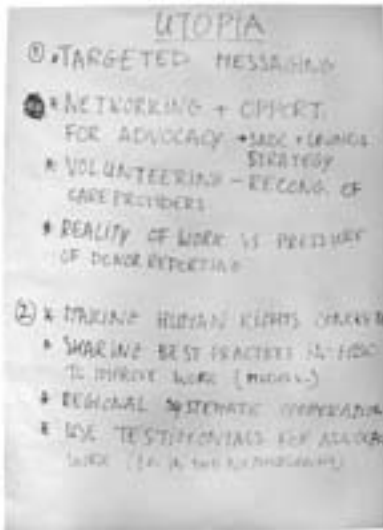 UTOPIA
① • TARGETED MESSAGING
* NETWORKING + OPPORT.
FOR ADVOCACY → SADC + COUNCIL
STRATEGY
* VOLUNTEERING - RECOG. OF
CARE PROVIDERS
* REALITY OF WORK VS PRESSURE
OF DONOR REPORTING
② * MAKING HUMAN RIGHTS CONCRETE
* SHARING BEST PRACTICES
TO IMPROVE WORK (MODELS)
* REGIONAL SYSTEMATIC COOPERATION
* USE TESTIMONIALS FOR ADVOCACY
WORK